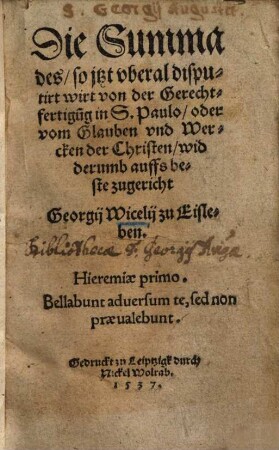 S. Georgij Augustae
Die Summa
des/ so jtzt vberal dispu-
tirt wirt von der Gerecht-
fertigūg in S. Paulo/ oder
vom Glauben vnd Wer-
cken der Christen/ wid
derumb auffs be-
ste zugericht
Georgij Wicelij zu Eisle-
ben.
Bibliotheca S. Georgij Aug.
Hieremiæ primo.
Bellabunt adversum te, sed non
prævalebunt.
Gedruckt zu Leiptzigk durch
Nickel Wolrab.
1537.